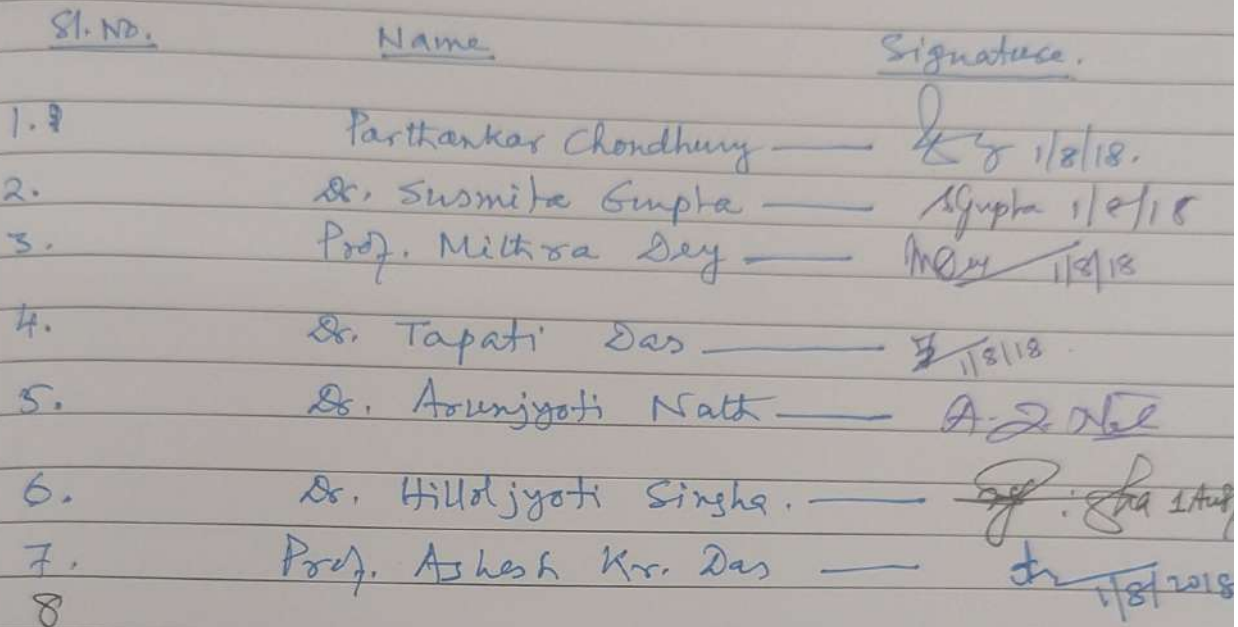 Sl. No. Name Signature.
1. Parthankar Choudhury — 1/8/18.
2. Dr. Susmita Gupta — SGupta 1/8/18
3. Prof. Mithra Dey — MDey 1/8/18
4. Dr. Tapati Das — 1/8/18.
5. Dr. Arunjyoti Nath — A. J. Nath
6. Dr. Hilloljyoti Singha. — 1 Aug
7. Prof. Ashesh Kr. Das — 1/8/2018
8